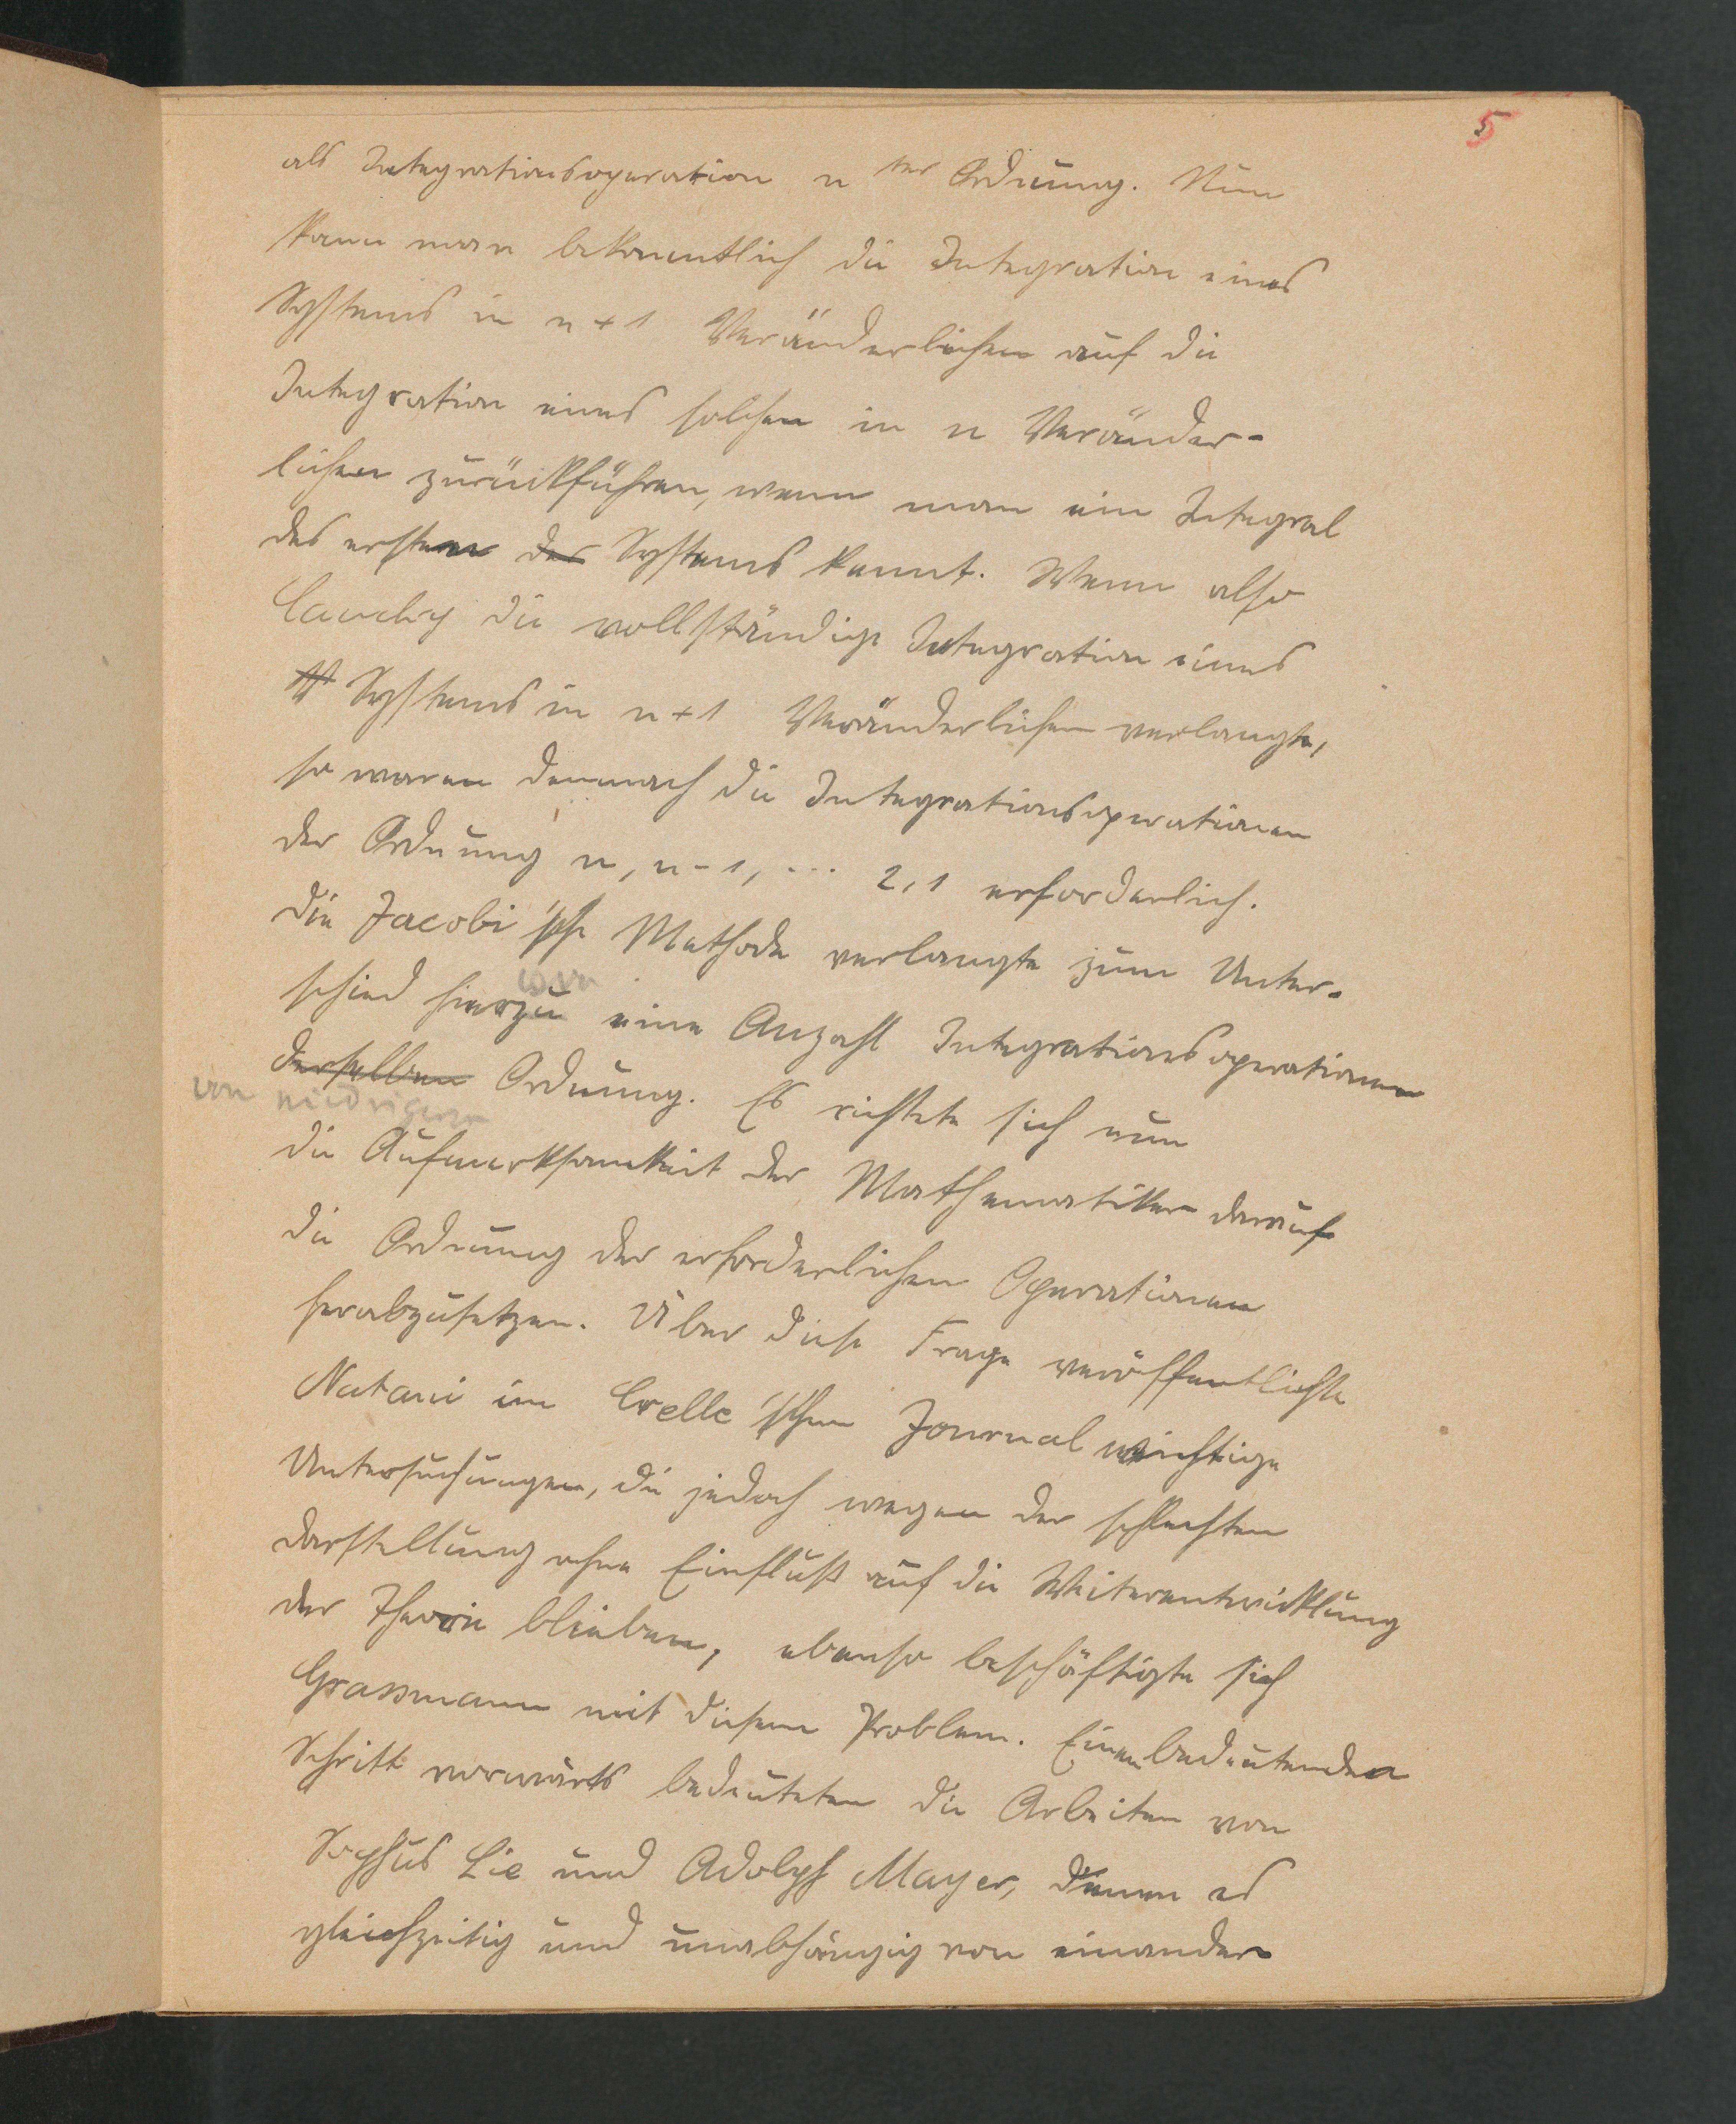 5
als Integrationsoperation n ter Ordnung. Nun
kann man bekanntlich die Integration eines
Systems in n+1 Veränderlichen auf die
Integration eines solchen in n Veränder-
lichen zurückführen, wenn man ein Integral
des ersten des Systems kennt. Wenn also
Cauchy die vollständige Integration eines
Systems in n+1 Veränderlichen verlangte,
so waren demnach die Integrationsoperationen
der Ordnung n, n-1, ... 2,1 erforderlich.
Die Jacobi'sche Methode verlangte zum Unter-
schied hierzu eine Anzahl Integrationsoperationen
derselben Ordnung. Es richtete sich nun
von niedrigerer
die Aufmerksamkeit der Mathematiker darauf
die Ordnung der erforderlichen Operationen
herabzusetzen. Über diese Frage veröffentlichte
Natani im Crelle'schen Journal wichtige
Untersuchungen, die jedoch wegen der schlechten
Darstellung ohne Einfluß auf die Weiterentwicklung
der Theorie blieben, ebenso beschäftigte sich
Grassmann mit diesem Problem. Einen bedeutenden
Schritt vorwärts bedeuteten die Arbeiten von
Sophus Lie und Adolph Mayer, denen es
gleichzeitig und unabhängig von einander